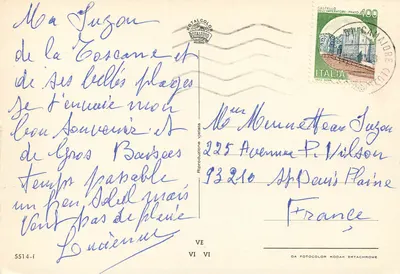 Ma Suzon
de la Toscane et
de ses belles plages
je t'envoie mon
bon souvenir et
de Gros Baisers
temps passable
un peu Soleil mais
Vent pas de pluie
Lucienne
5514-I
FOTOCOLOR
Riproduzione vietata
VE
VI VI
400
ITALIA
Suzon
225 Avenue P. Wilson
93210 St Denis Plaine
France
DA FOTOCOLOR KODAK EKTACHROME